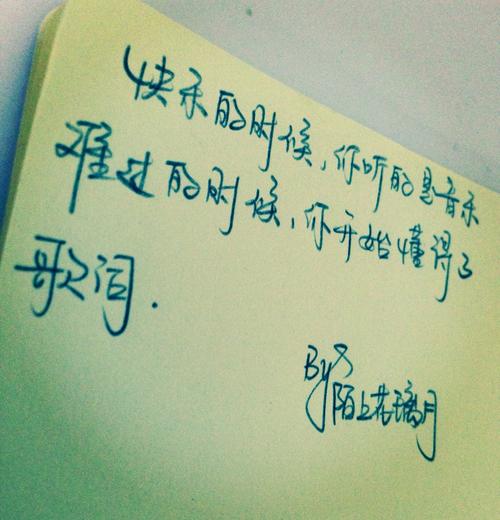 快乐的时候,你听的是音乐
难过的时候,你开始懂得了
歌词.
By 陌上花璃月